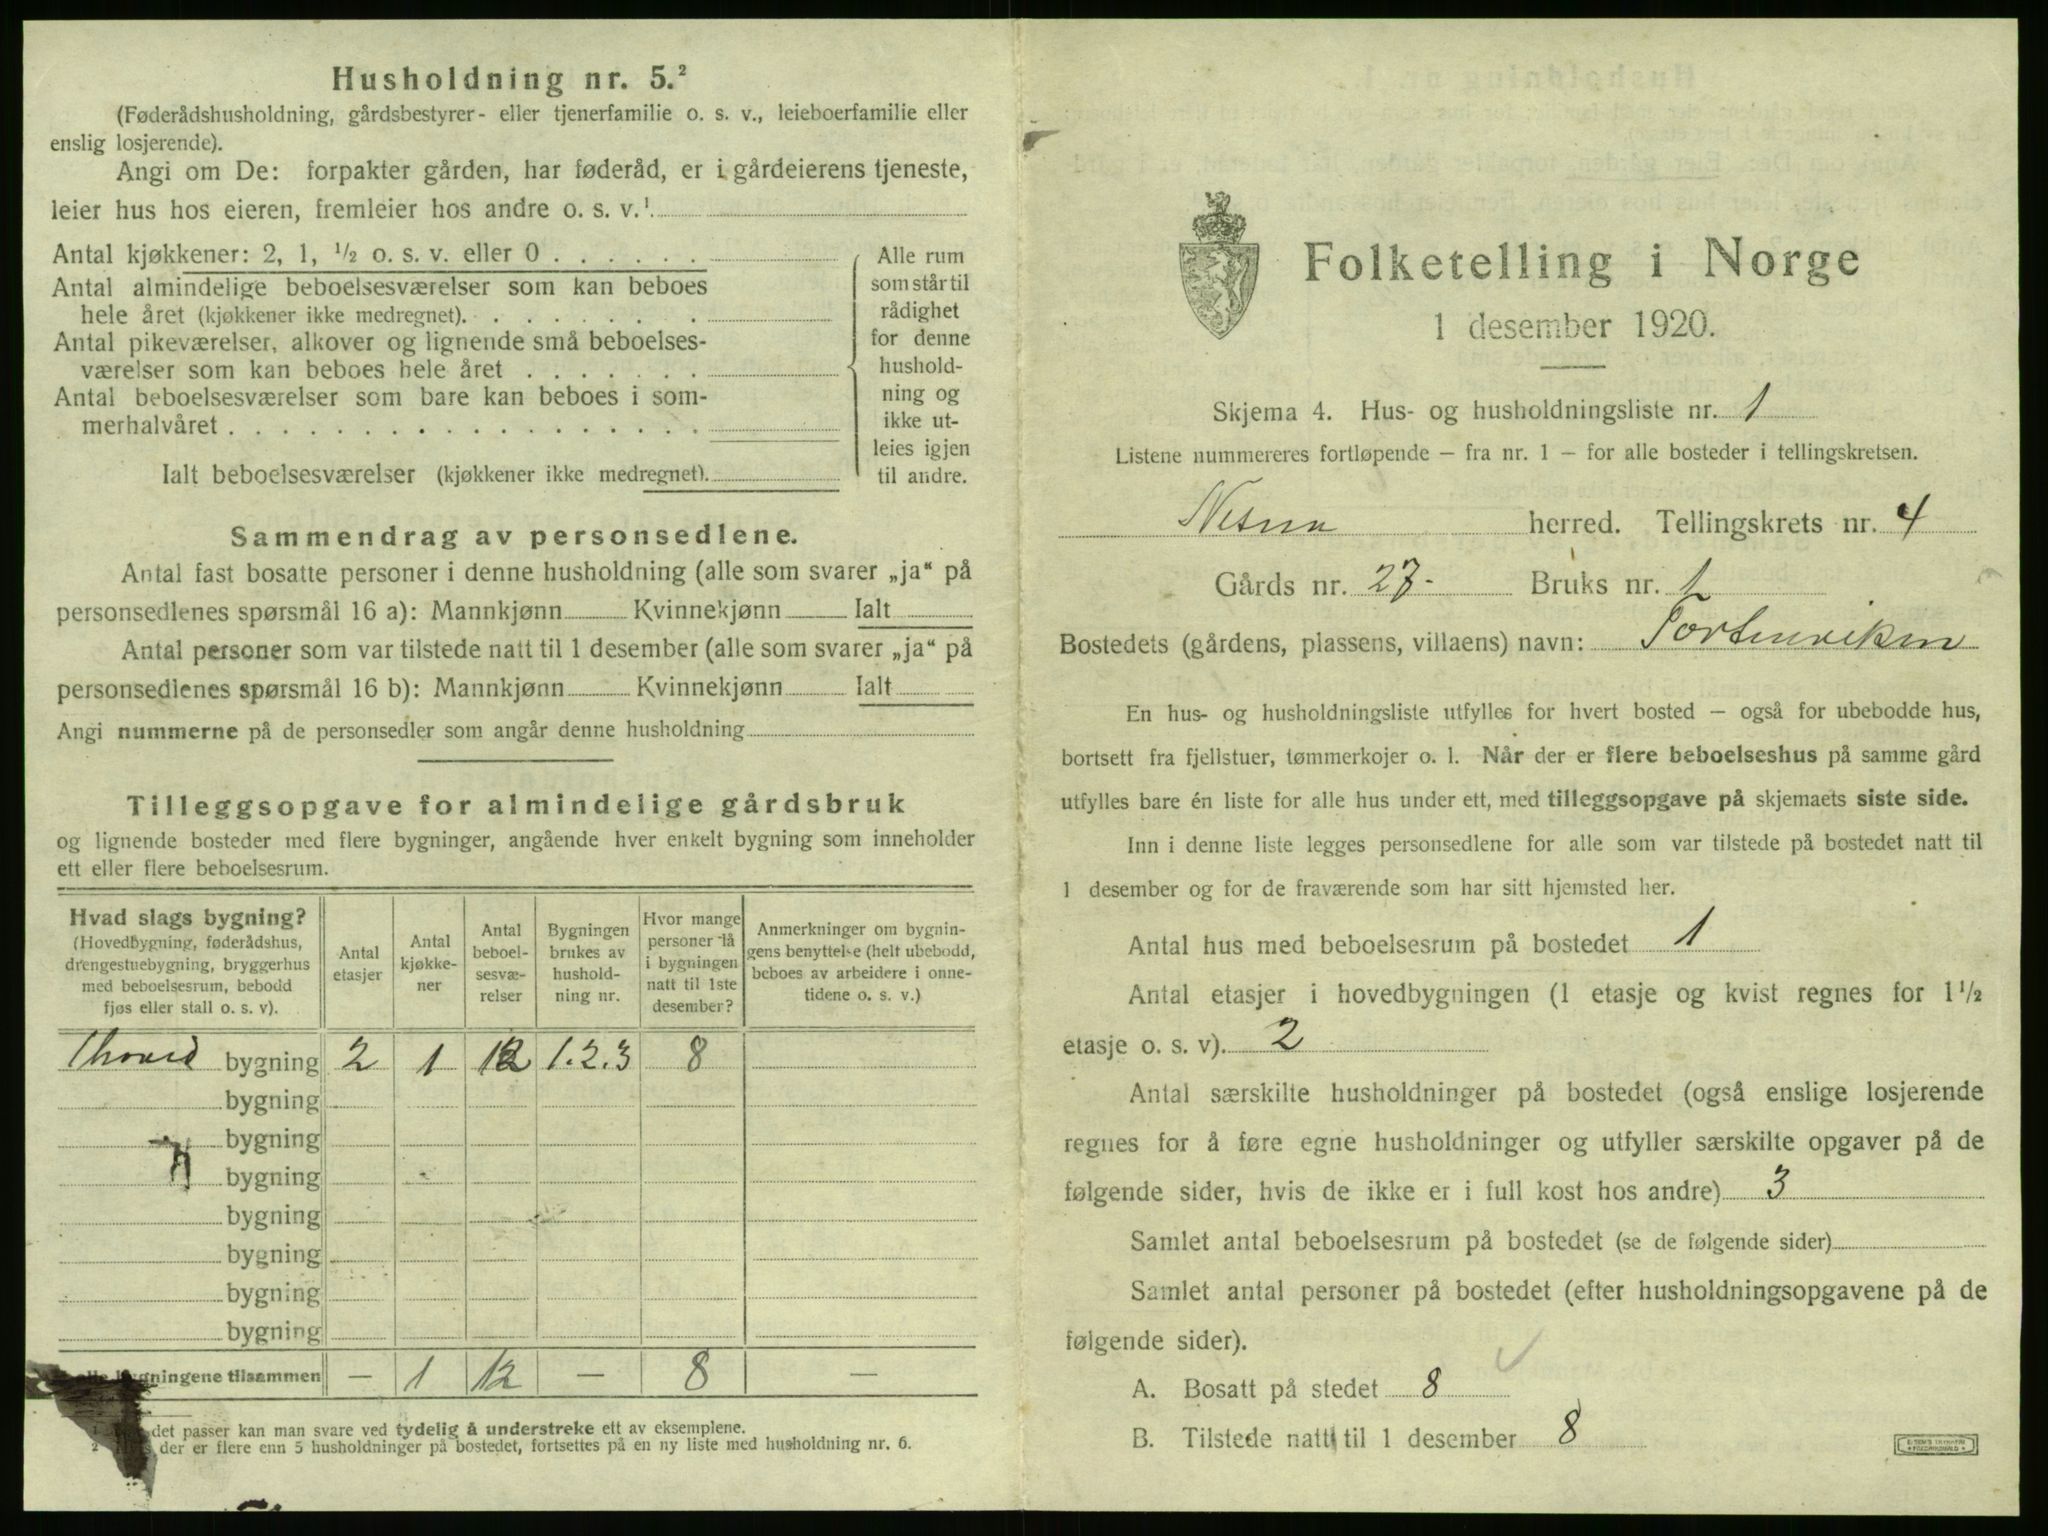 Husholdning nr. 5.²
(Føderådshusholdning, gårdsbestyrer- eller tjenerfamilie o. s. v., leieboerfamilie eller
enslig losjerende).
Angi om De: forpakter gården, har føderåd, er i gårdeierens tjeneste,
leier hus hos eieren, fremleier hos andre o. s. v.¹
Antal kjøkkener: 2, 1, ½ o. s. v. eller 0 . . . . . .
Antal almindelige beboelsesværelser som kan beboes
hele året (kjøkkener ikke medregnet). . . . . . . .
Antal pikeværelser, alkover og lignende små beboelses-
værelser som kan beboes hele året . . . . . . .
Antal beboelsesværelser som bare kan beboes i som-
merhalvåret . . . . . . . . . . . . . . . . . .
Ialt beboelsesværelser (kjøkkener ikke medregnet).
Alle rum
som står til
rådighet
for denne
hushold-
ning og
ikke ut-
leies igjen
til andre.
Sammendrag av personsedlene.
Antal fast bosatte personer i denne husholdning (alle som svarer „ja“ på
personsedlenes spørsmål 16 a): Mannkjønn Kvinnekjønn Ialt
Antal personer som var tilstede natt til 1 desember (alle som svarer „ja“ på
personsedlenes spørsmål 16 b): Mannkjønn Kvinnekjønn Ialt
Angi nummerne på de personsedler som angår denne husholdning
Tilleggsopgave for almindelige gårdsbruk
og lignende bosteder med flere bygninger, angående hver enkelt bygning som inneholder
ett eller flere beboelsesrum.
Hvad slags bygning?
(Hovedbygning, føderådshus,
drengestuebygning, bryggerhus
med beboelsesrum, bebodd
fjøs eller stall o. s. v).
Antal
etasjer
Antal
kjøkke-
ner
Antal
beboel-
sesvæ-
relser
Bygningen
brukes av
hushold-
ning nr.
Hvor mange
personer lå
i bygningen
natt til 1ste
desember?
Anmerkninger om bygnin-
gens benyttelse (helt ubebodd,
beboes av arbeidere i onne-
tidene o. s. v.)
1 hoved bygning 2 1 12 1.2.3 8
bygning
bygning
bygning
bygning
bygning
bygning
bygning
alle bygningene tilsammen — 1 12 — 8 —
¹ det passer kan man svare ved tydelig å understreke ett av eksemplene.
² der er flere enn 5 husholdninger på bostedet, fortsettes på en ny liste med husholdning nr. 6.
Folketelling i Norge
1 desember 1920.
Skjema 4. Hus- og husholdningsliste nr. 1
Listene nummereres fortløpende – fra nr. 1 – for alle bosteder i tellingskretsen.
Nesna herred. Tellingskrets nr. 4
Gårds nr. 27- Bruks nr. 1
Bostedets (gårdens, plassens, villaens) navn: Tortenviken
En hus- og husholdningsliste utfylles for hvert bosted – også for ubebodde hus,
bortsett fra fjellstuer, tømmerkojer o. l. Når der er flere beboelseshus på samme gård
utfylles bare én liste for alle hus under ett, med tilleggsopgave på skjemaets siste side.
Inn i denne liste legges personsedlene for alle som var tilstede på bostedet natt til
1 desember og for de fraværende som har sitt hjemsted her.
Antal hus med beboelsesrum på bostedet 1
Antal etasjer i hovedbygningen (1 etasje og kvist regnes for 1½
etasje o. s. v). 2
Antal særskilte husholdninger på bostedet (også enslige losjerende
regnes for å føre egne husholdninger og utfyller særskilte opgaver på de
følgende sider, hvis de ikke er i full kost hos andre) 3
Samlet antal beboelsesrum på bostedet (se de følgende sider)
Samlet antal personer på bostedet (efter husholdningsopgavene på de
følgende sider).
A. Bosatt på stedet 8
B. Tilstede natt til 1 desember 8